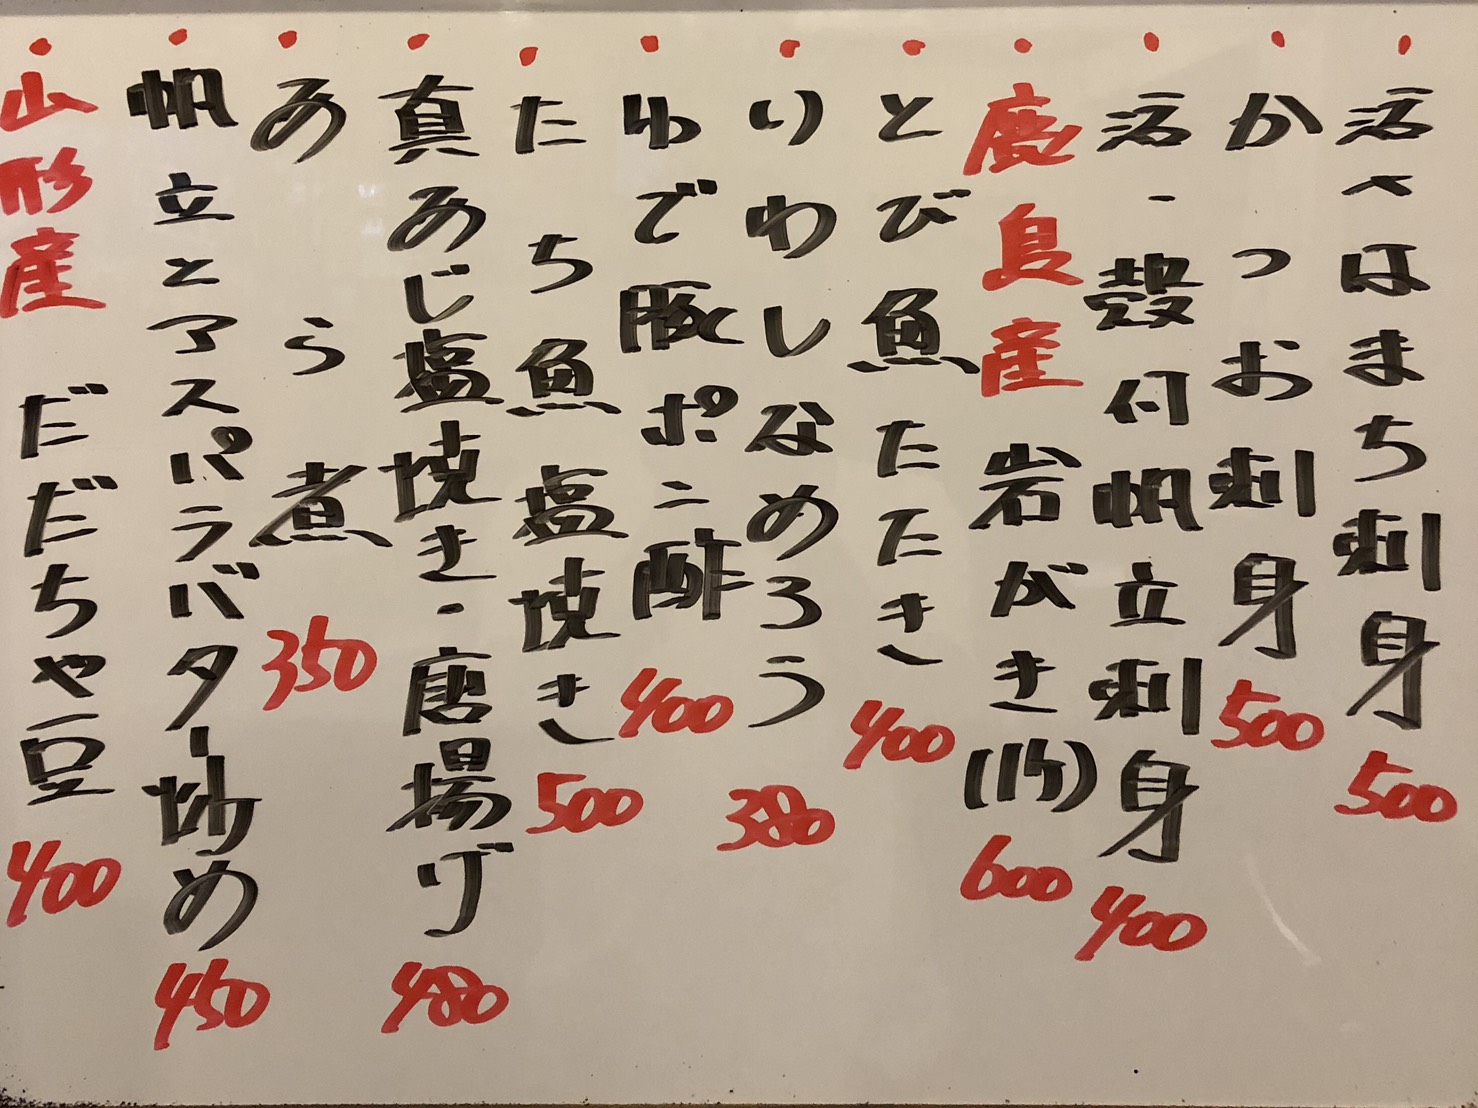 ・活〆はまち刺身 500
・かつお刺身 500
・活・殻付帆立刺身 400
・鹿島産 岩がき(1ケ) 600
・とび魚たたき 400
・いわしなめろう 380
・ゆで豚ポン酢 400
・たち魚塩焼き 500
・真あじ塩焼き・唐揚げ 480
・あら煮 350
・帆立とアスパラバター炒め 450
・山形産 だだちゃ豆 400